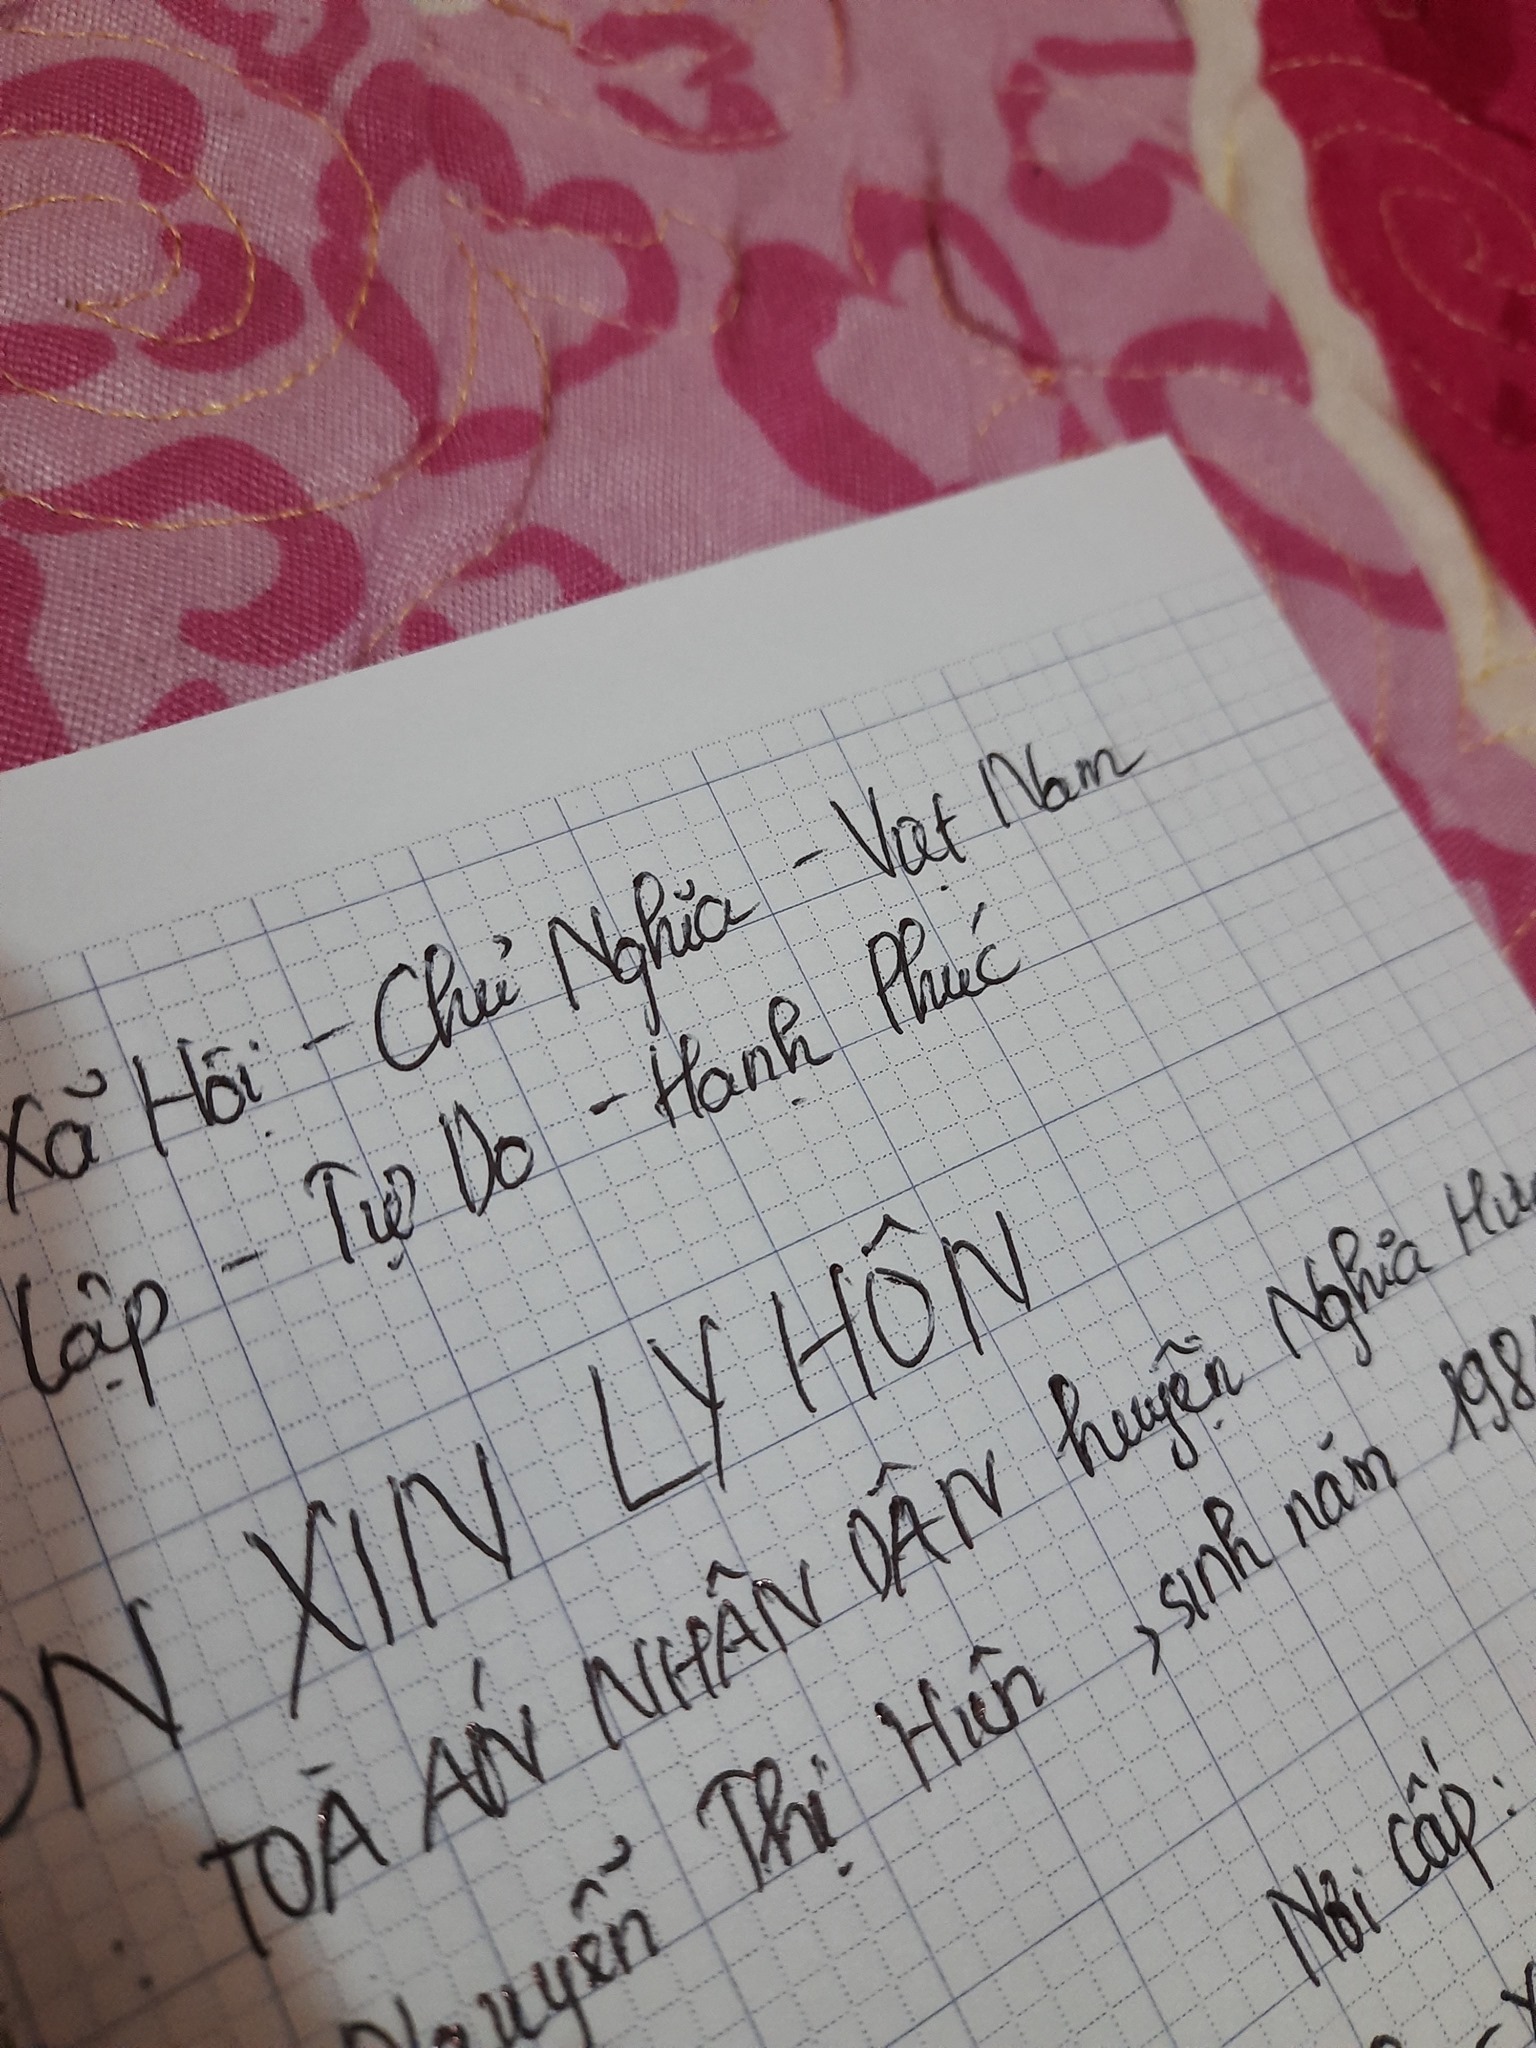 Xã Hội - Chủ Nghĩa - Việt Nam
Lập - Tự Do - Hạnh Phúc
ƠN XIN LY HÔN
TOÀ ÁN NHÂN DÂN huyện Nghĩa Hư
Nguyễn Thị Hiên, sinh năm 198
Nơi cấp: